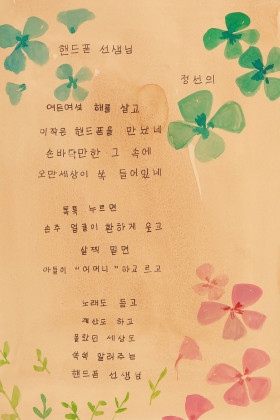 핸드폰 선생님
정선의
여든여섯 해를 살고
이작은 핸드폰을 만났네
손바닥만한 그 속에
오만세상이 쏙 들어있네
톡톡 누르면
손주 얼굴이 환하게 웃고
살짝 밀면
아들이 "어머니" 하고 르고
노래도 듣고
계산도 하고
몰랐던 세상도
쏙쏙 알려주는
핸드폰 선생님